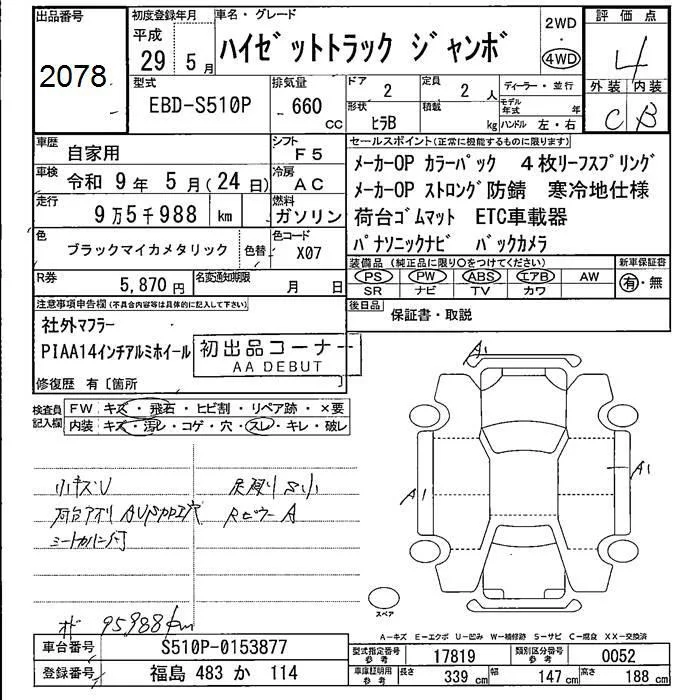 出品番号
2078
初度登録年月
平成
29 5月
車名・グレード
ハイゼットトラック ジャンボ
2WD
・
4WD
評価点
4
外装 内装
C B
型式
EBD-S510P
排気量
660
CC
ドア
2
定員
2 人
形状
ヒラB
積載
kg
ディーラー・並行
モデル年式 年
ハンドル 左・右
車歴
自家用
シフト
F5
車検
令和 9年 5月(24日)
冷房
AC
走行
9万5千988 km
燃料
ガソリン
色
ブラックマイカメタリック
色替
色コード
X07
R券
5,870円
名変通知期限
月 日
セールスポイント(正常に機能するものに限ります)
メーカーOP カラーパック 4枚リーフスプリング
メーカーOP ストロング防錆 寒冷地仕様
荷台ゴムマット ETC車載器
パナソニックナビ バックカメラ
装備品(純正品に限り○をつけてください)
PS PW ABS エアB AW
SR ナビ TV カワ
新車保証書
有・無
後日品
保証書・取説
注意事項申告欄(不具合内容等は具体的に記入して下さい)
社外マフラー
PIAA14インチアルミホイール
初出品コーナー
AA DEBUT
修復歴 有〔箇所 〕
検査員
記入欄
FW キズ・飛石・ヒビ割・リペア跡・×要
内装 キズ・汚レ・コゲ・穴・スレ・キレ・破レ
小キズU
荷台アオリ AU
シートカバー付
足廻りS小
Rピラー A
オド 95988km
A1
A1
A1
スペア
A-キズ E-エクボ U-凹み W-補修跡 S-サビ C-腐食 XX-交換済
車台番号
S510P-0153877
登録番号
福島 483 か 114
型式指定番号
参考
17819
類別区分番号
参考
0052
車庫証明用
参考
長さ 339 cm 幅 147 cm 高さ 188 cm